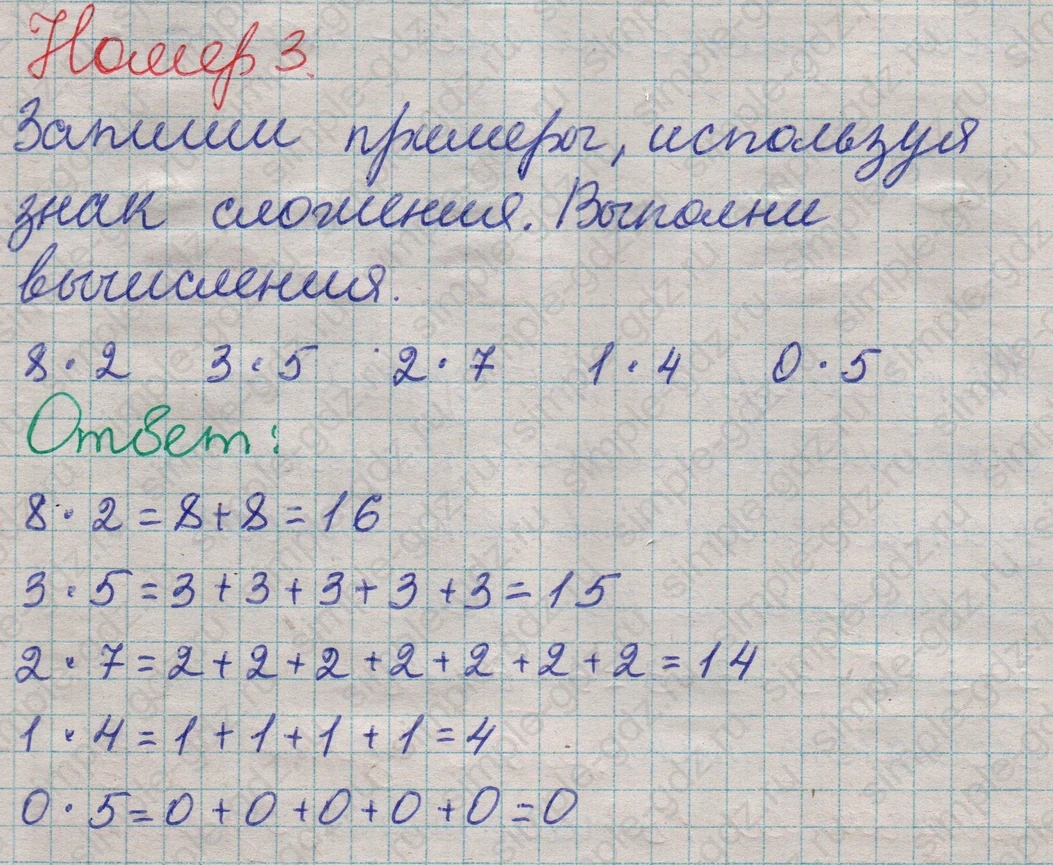 Номер 3.
Запиши примеры, используя
знак сложения. Выполни
вычисления.
8 · 2 3 · 5 2 · 7 1 · 4 0 · 5
Ответ:
8 · 2 = 8 + 8 = 16
3 · 5 = 3 + 3 + 3 + 3 + 3 = 15
2 · 7 = 2 + 2 + 2 + 2 + 2 + 2 + 2 = 14
1 · 4 = 1 + 1 + 1 + 1 = 4
0 · 5 = 0 + 0 + 0 + 0 + 0 = 0
simple-gdz.ru